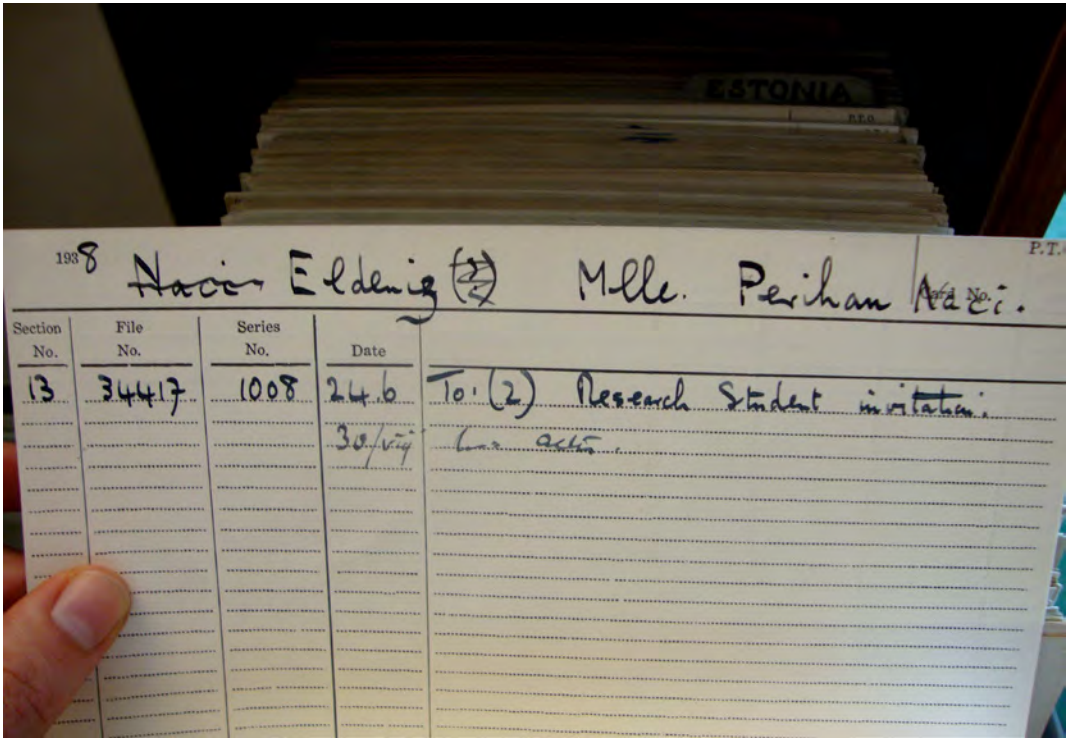 ESTONIA
P.P.O.
1938 Naci Eldeniz (2) Mlle. Perihan Naci. Card No. P.T.
Section No. File No. Series No. Date
13 34417 1008 24.6 To: (2) Research Student invitation.
30/viij